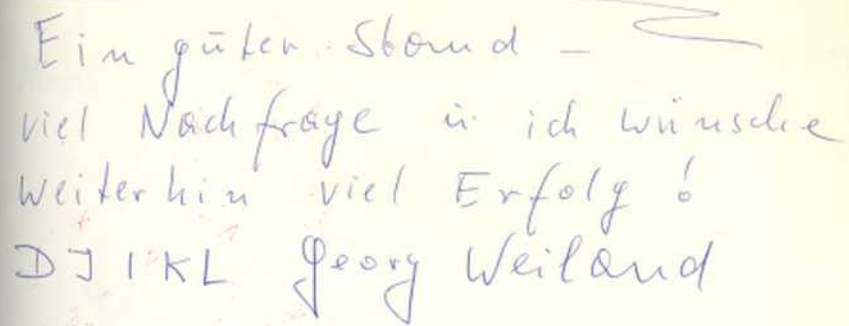 Ein guter Stand –
viel Nachfrage u. ich wünsche
weiterhin viel Erfolg!
DJ1KL Georg Weiland